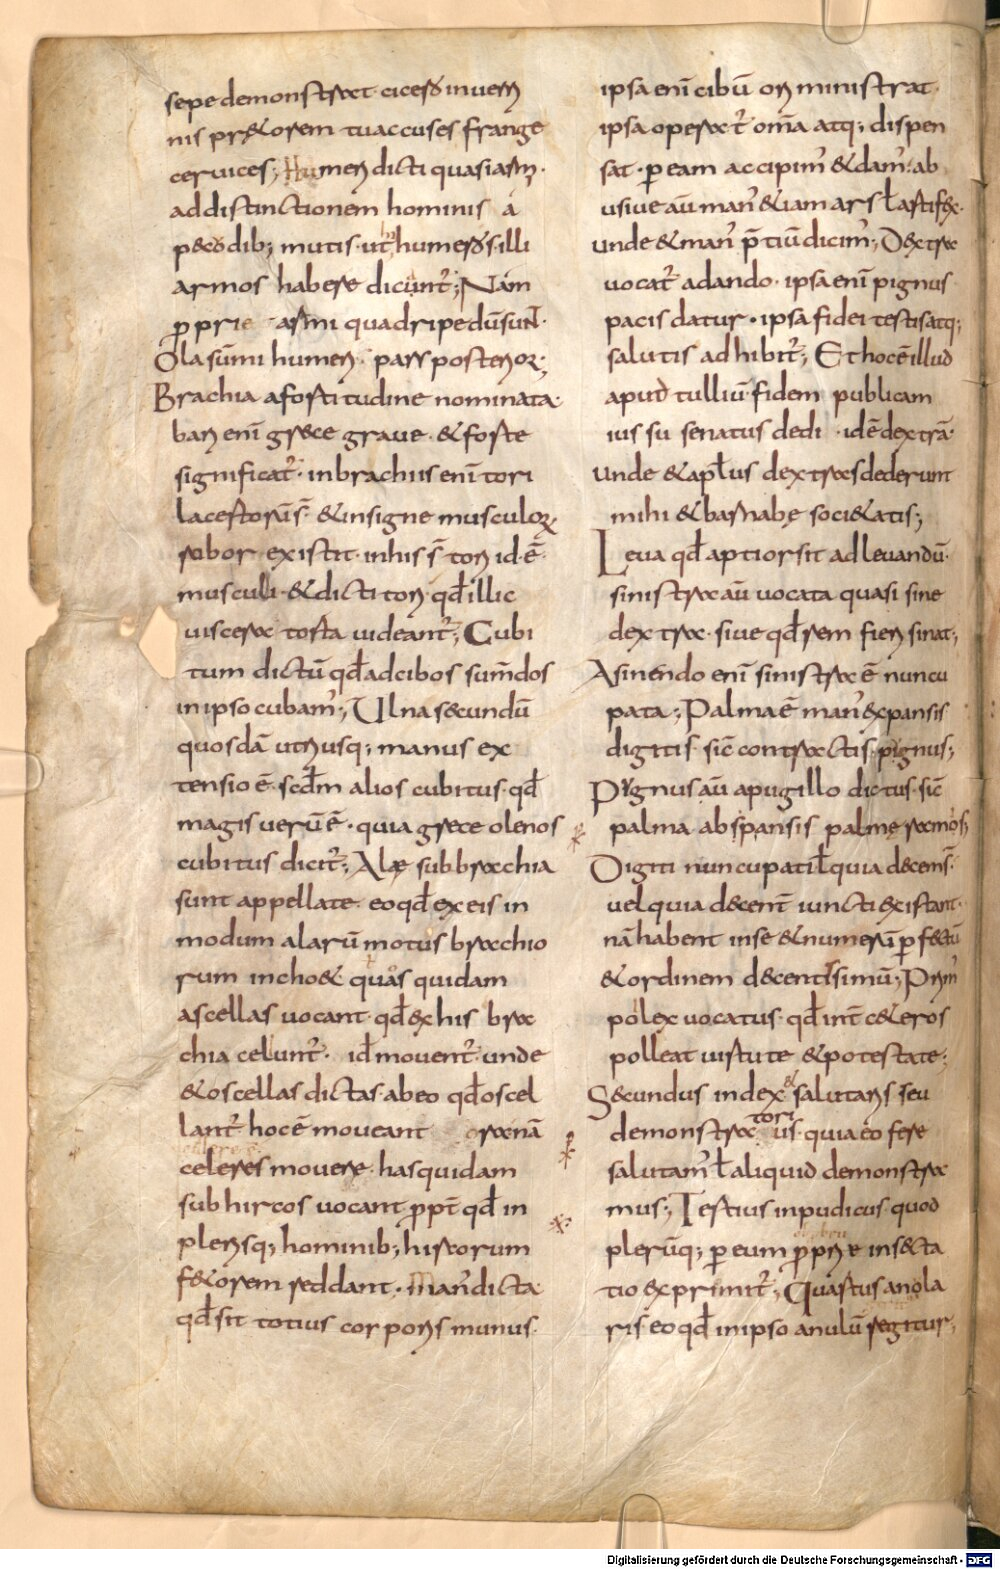 sepe demonstrat cicero inuerri
nis pretorem tu accuses frange
ceruices; Humeri dicti quasi armi·
ad distinctionem hominis a
pecodib; mutis· ut humeros illi
armos habere dicunt̄; Nam
ꝓprie armi quadripedū sunt·
Ola sūmi humeri· pars posterior;
Brachia a fortitudine nominata·
bari enī grece graue· & forte
significat̄· in brachiis enī tori
lacertorū s̄ & insigne musculoꝝ
robor existit· in his s̄ tori id·ē·
musculi· & dicti tori· qđ illic
uiscera tosta uideant̄; Cubi
tum dictū qđ ad cibos sum̄dos
in ipso cubam̄; Ulna secundū
quosdā utriusq; manus ex
tensio ē· scđm alios cubitus· qđ
magis uerū ē· quia grece olenos
cubitus dicit̄; Alę sub brachia
sunt appellate· eo qđ ex eis in
modum alarū motus brachio
rum inchoet quas quidam
ascellas uocant· qđ ex his bra
chia celunt̄· id mouent̄· unde
& oscellas dictas· ab eo qđ oscel
lant̄ hoc ē moueant nā
celeres mouere· has quidam
subhircos uocant ꝓpt̄ qđ in
plerisq; hominib; hircorum
fetorem reddant· Man̄ dicta·
qđ sit totius corporis munus·
ipsa enī cibū ori ministrat·
ipsa operat̄ om̄a atq; dispen
sat· ꝑ eam accipim̄ & dam̄· ab
usiue aū man̄ etiam ars ł artifex·
unde & man̄ p̄tiū dicim̄; Dextra
uocat̄ a dando· ipsa enī pignus
pacis datur· ipsa fidei testis atq;
salutis adhibit̄; Et hoc ē illud
apud tulliū· fidem publicam
iussu senatus dedi· id ē dextrā·
unde & apłus dextras dederunt
mihi & barnabę societatis;
Leua qđ aptior sit ad leuandū·
sinistra aū uocata quasi sine
dextra· siue qđ rem fieri sinat;
A sinendo enī sinistra ē nuncu
pata; Palma ē man̄ expansis
digitis· sic̄ contractis· pignus;
Pygnus aū a pugillo dictus· sic̄
palma ab spansis palmę ramos;
Digiti nuncupati ł quia decem s̄·
uel quia decent̄ iuncti existant·
nā habent in se & numerū ꝑfectū
& ordinem decentissimū; Prim̄
polex uocatus· qđ int̄ ceteros
polleat uirtute & potestate;
Secundus index & salutaris seu
demonstratorius· quia eo fere
salutam̄ ł aliquid demonstra
mus; Tertius inpudicus· quod
plerūq; ꝑ eum ꝓpri e insecta
tio exprimit̄; Quartus anola
ris· eo qđ in ipso anulū regitur;
Digitalisierung gefördert durch die Deutsche Forschungsgemeinschaft - DFG